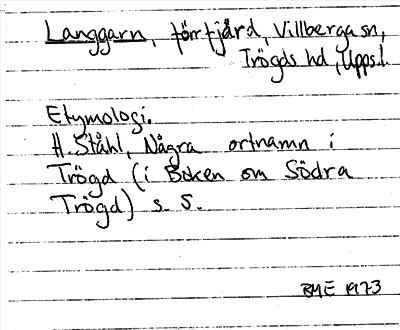 Langgarn, förr fjärd, Villberga sn,
Trögds hd, Upps.l.
Etymologi.
H. Ståhl, Några ortnamn i
Trögd (i Boken om Södra
Trögd) s. 5.
BME 1973